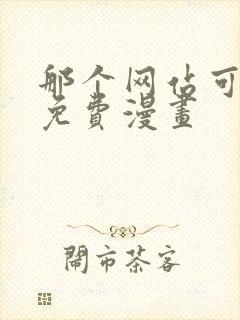 那个网站可
免費漫畫
鬧市茶客